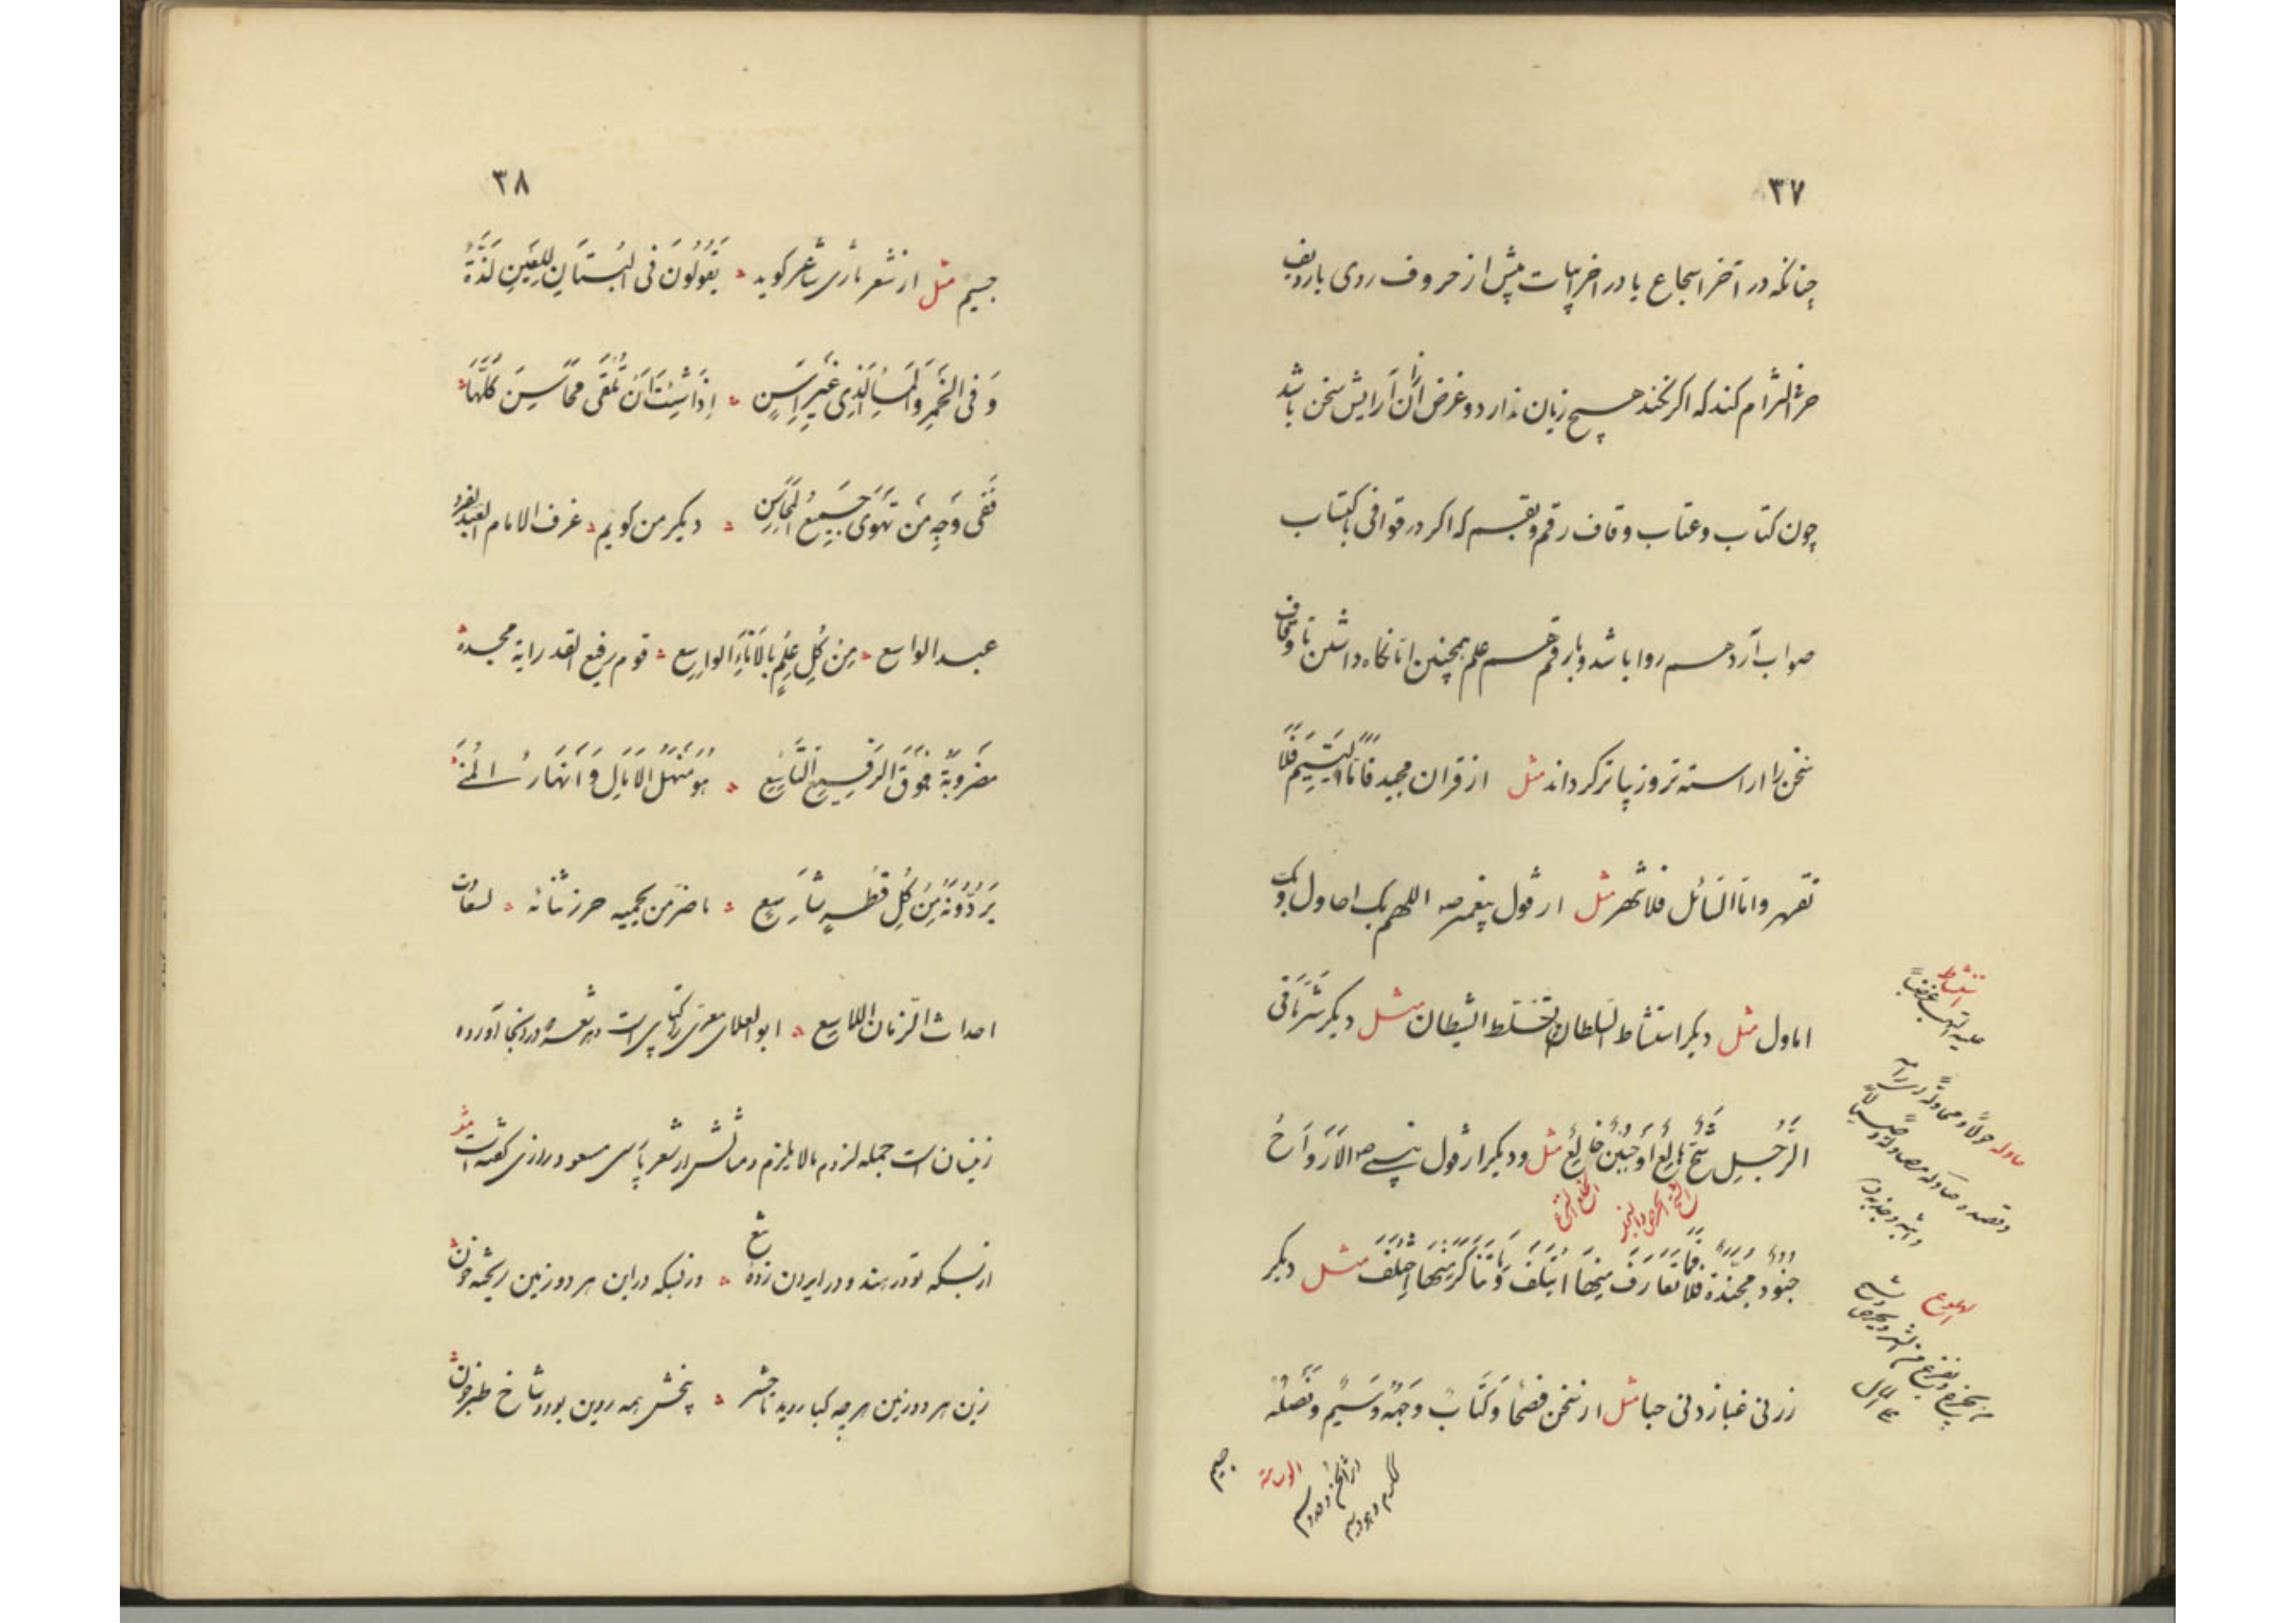 ۳۷
چنانکه در آخر اسجاع یا در اخر ابیات پیش از حروف روی یا ردیف
حرفی التزام کند که اکر نکند هیچ زیان ندارد و غرض از آن آرایش سخن باشد
چون کتاب و عتاب و قاف رقم و بقسم که اکر در قوافی با کتاب
صواب آرد هم روا باشد و با رقم هم علم همچنین اما نکاه داشتن تا و قاف
سخن را اراسته تر و زیباتر کرداند مثل از قران مجید فاما الیتیم فلا
تقهر واما السائل فلا تنهر مثل از قول پیغمبر صه اللهم بک احاول وبک
اصاول مثل دیکر استشاط السلطان تسلط الشیطان مثل دیکر شر ما فی
الرجل شح هالع او جبن خالع مثل ودیکر از قول نبی صه الارواح
جنود مجندة فما تعارف منها ائتلف وما تناکر منها اختلف مثل دیکر
زرنی غبا تزدنی حبا مثل از سخن فصحا وکتاب وجهه وسیم وفضله
جسیم
۳۸
جسیم مثل از شعر تازی شاعر کوید یقولون فی البستان للعین لذة
وفی الخمر والماء الذی غیر اسن اذا شئت ان تلقی محاسن کلها
ففی وجه من تهوی جمیع المحاسن دیکر من کویم غرف الامام العبد الفرد
عبد الواسع من کل علم بالاناء الواسع قوم رفیع القدر رایة مجده
مضروبة فوق الرفیع التاسع هو منهل الامال وانهار المنی
یردونه من کل قطر شاسع ناصر من یحمیه حرز شانه لسعات
احداث الزمان اللاسع ابوالعلای معری را کتابی است در شعر و درانجا آورده
زینسان است جمله لزوم مالایلزم ومثالش از شعر پارسی مسعود رازی کفته است شعر
از بسکه تو در هند و در ایران زده تیغ وز بسکه درین هر دو زمین ریخته خون
زین هر دو زمین هرچه کیا روید تا حشر بیخش همه روین بود و شاخ طبرخون